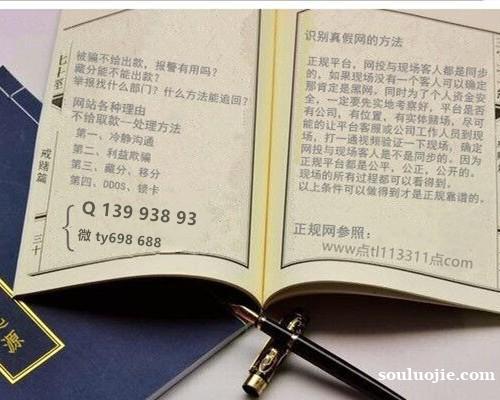 七十至
戒赌篇
三十
被骗不给出款，报警有用吗？
藏分能不能出款？
举报找什么部门？什么方法能追回？
网站各种理由
不给取款一处理方法
第一、冷静沟通
第二、利益欺骗
第三、藏分、移分
第四、DDOS、锁卡
Q 139 938 93
微 ty698 688
识别真假网的方法
正规平台，网投与现场客人都是同步
的，如果现场没有一个客人可以确定
那肯定是黑网。同时为了个人资金安
全，一定要先实地考察好，平台是否
有公司，有位置，有实体赌场，尽可
能的让平台客服或公司工作人员到现
场，打一通视频验证一下现场，确定
网投与现场客人是不是同步的。因为
正规平台都是公平，公正，公开的。
现场的所有过程都可以看得到。
以上条件可以做得到才是正规靠谱的。
正规网参照：
www点tl113311点com
源
souluojie.com